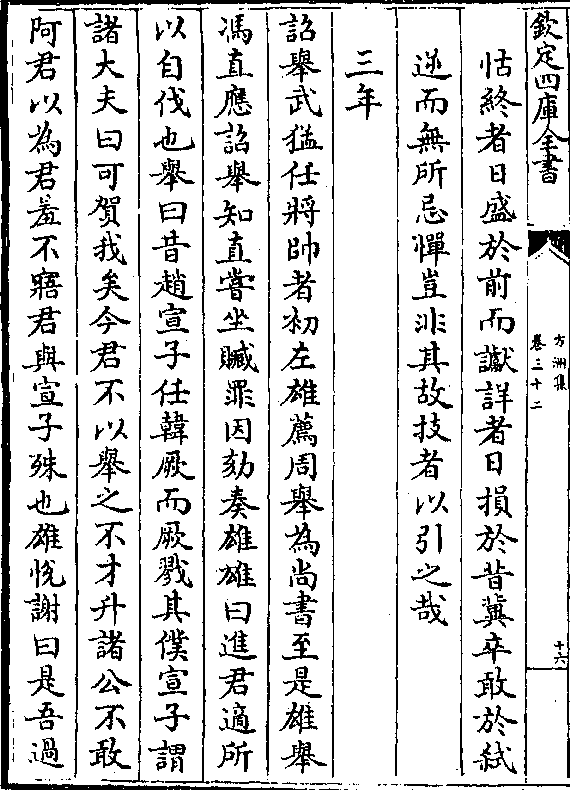 欽定四庫全書
方洲集
卷二十二
十六
怙終者日盛於前而讞詳者日損於昔冀卒敢於弑
逆而無所忌憚豈非其故技者以引之哉
三年
詔舉武猛任將帥者初左雄薦周舉為尚書至是雄舉
馮直應詔舉知直嘗坐贓罪因劾奏雄雄曰進君適所
以自伐也舉曰昔趙宣子任韓厥而厥戮其僕宣子謂
諸大夫曰可賀我矣今君不以舉之不才升諸公不敢
阿君以為君羞不寤君與宣子殊也雄悅謝曰是吾過